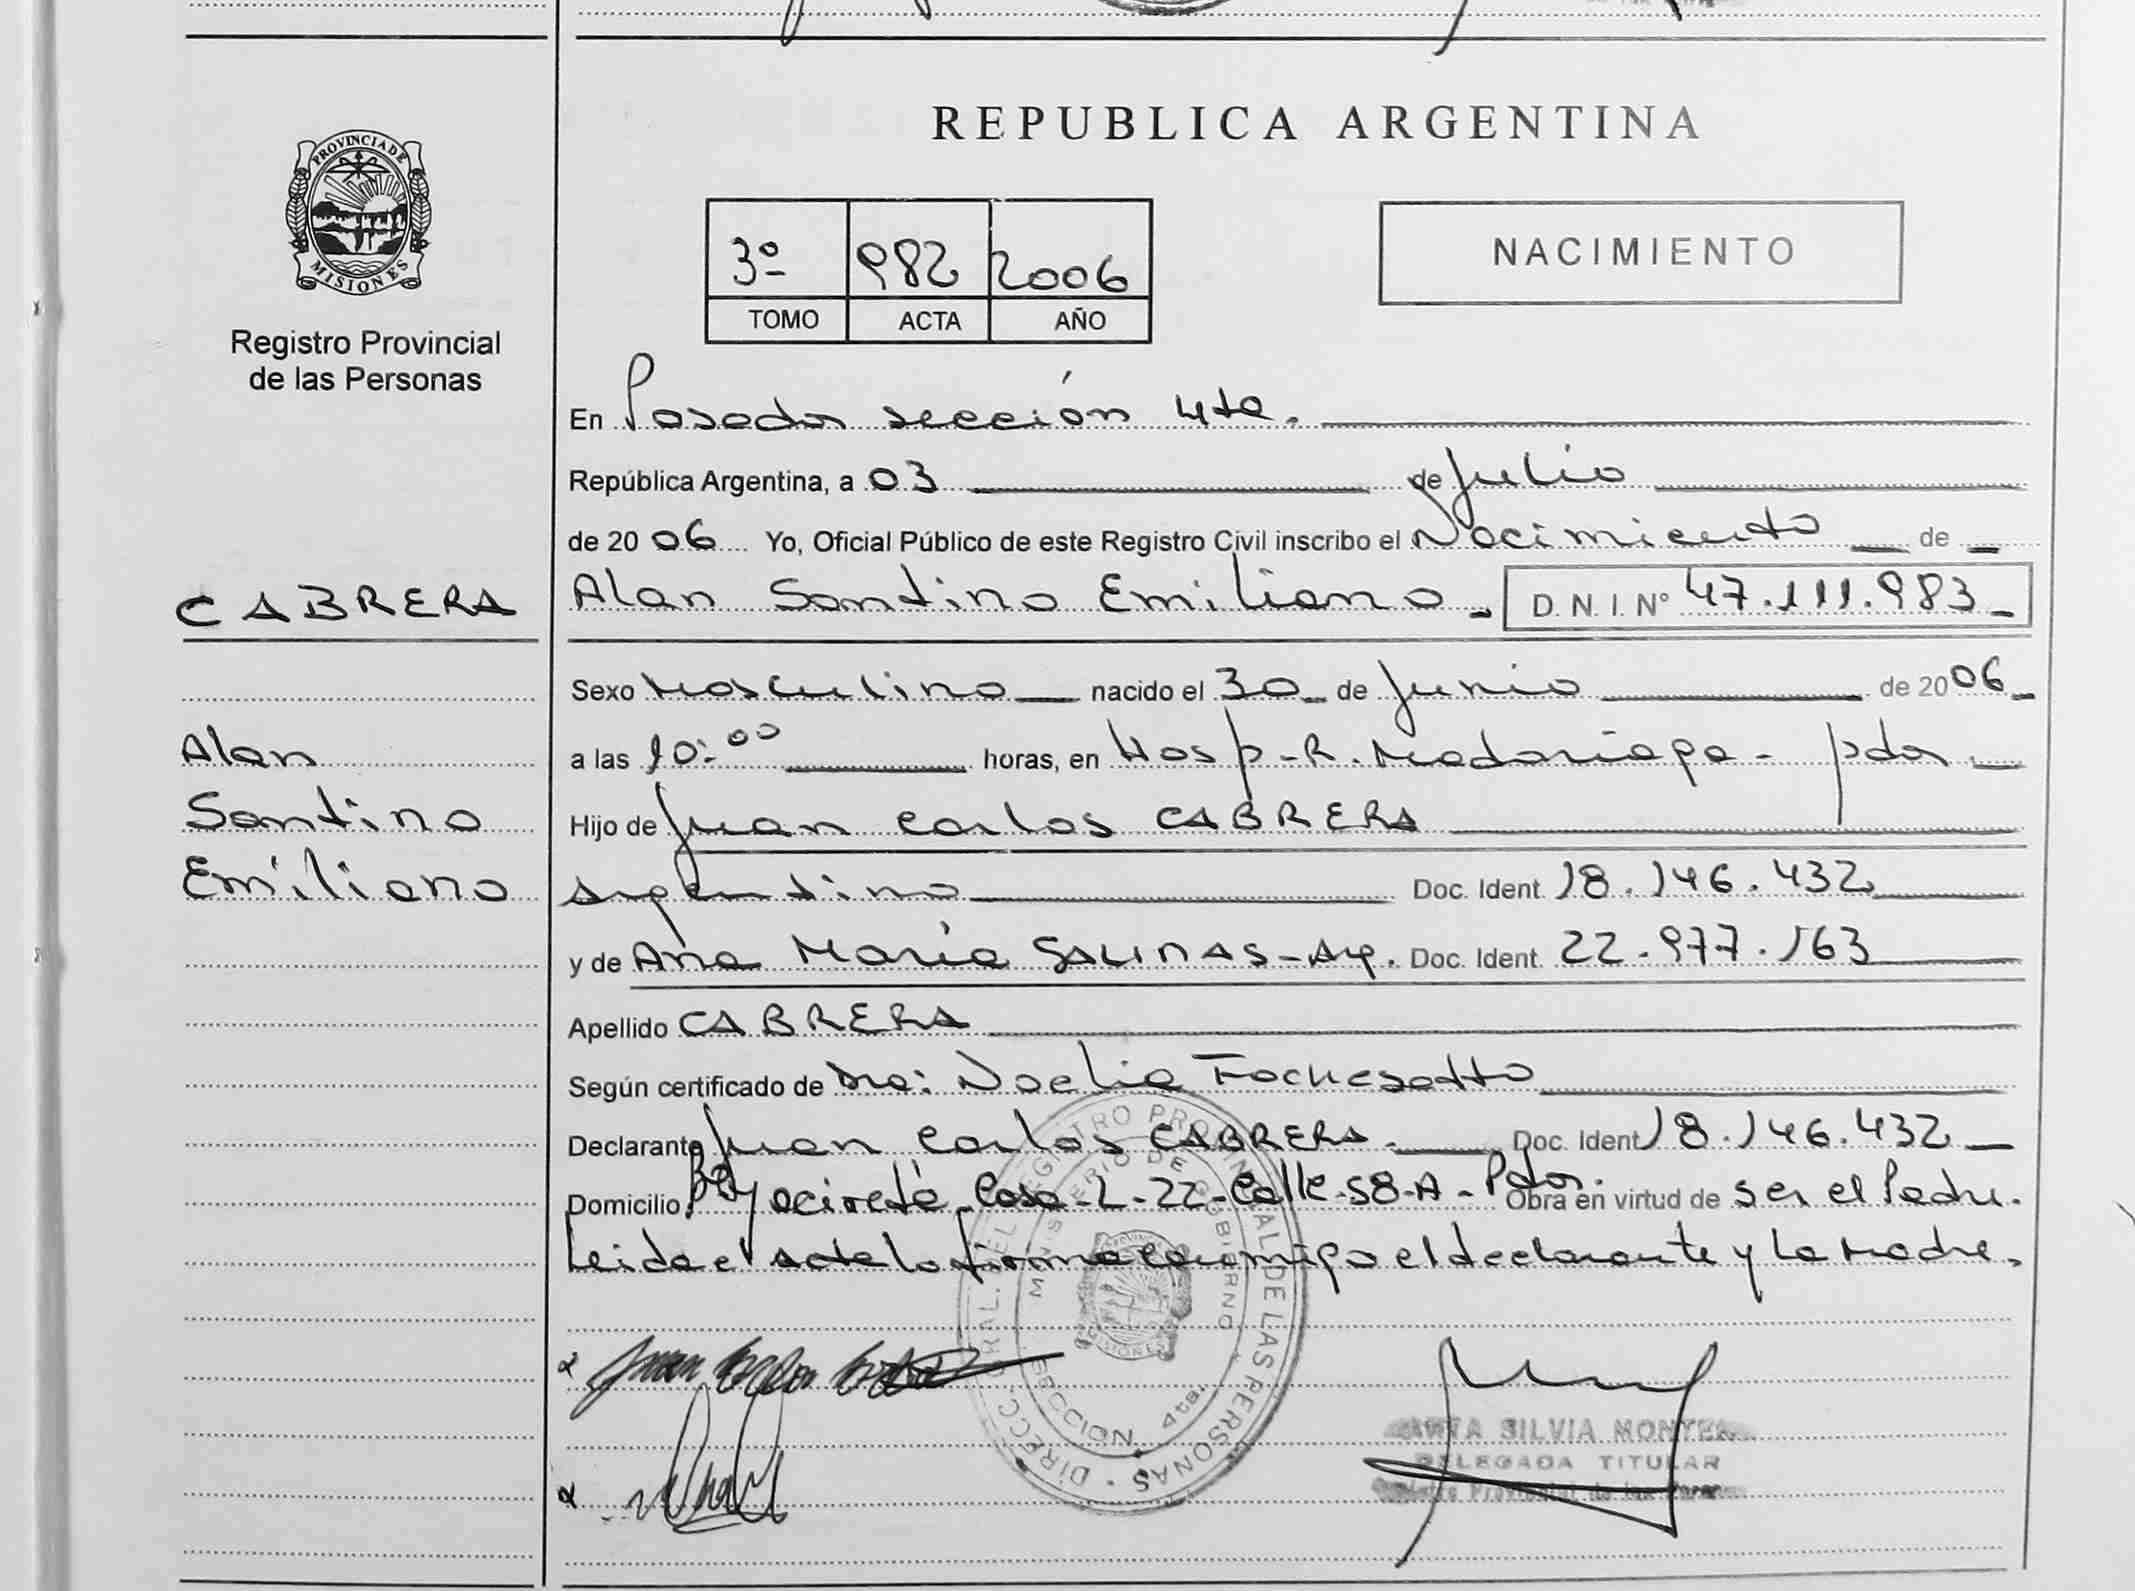 REPUBLICA ARGENTINA
PROVINCIA DE
MISIONES
Registro Provincial
de las Personas
3º 982 2006
TOMO ACTA AÑO
NACIMIENTO
En Posadas sección 4ta.
República Argentina, a 03 de Julio
de 2006 Yo, Oficial Público de este Registro Civil inscribo el Nacimiento de
CABRERA
Alan Santino Emiliano D. N. I. Nº 47.111.983
Sexo Masculino nacido el 30 de Junio de 2006
Alan
a las 10:00 horas, en Hosp-R. Madariaga - pdas
Santino
Hijo de Juan Carlos CABRERA
Emiliano
argentino Doc. Ident. 18.146.432
y de Ana María SALINAS-Arg. Doc. Ident. 22.977.163
Apellido CABRERA
Según certificado de Dra: Noelia Fochesatto
Declarante Juan Carlos CABRERA. Doc. Ident 18.146.432
Domicilio Bº Yacireta Casa-L-22-Calle-58-A-Pdas. Obra en virtud de ser el Padre.
Leida el acta la firma conmigo el declarante y la madre.
DIRECC. GRAL. DEL REGISTRO PROVINCIAL DE LAS PERSONAS
MINISTERIO DE GOBIERNO
SECCION 4ta.
PROVINCIA DE
MISIONES
SILVIA
DELEGADA TITULAR
Registro Provincial de las Personas